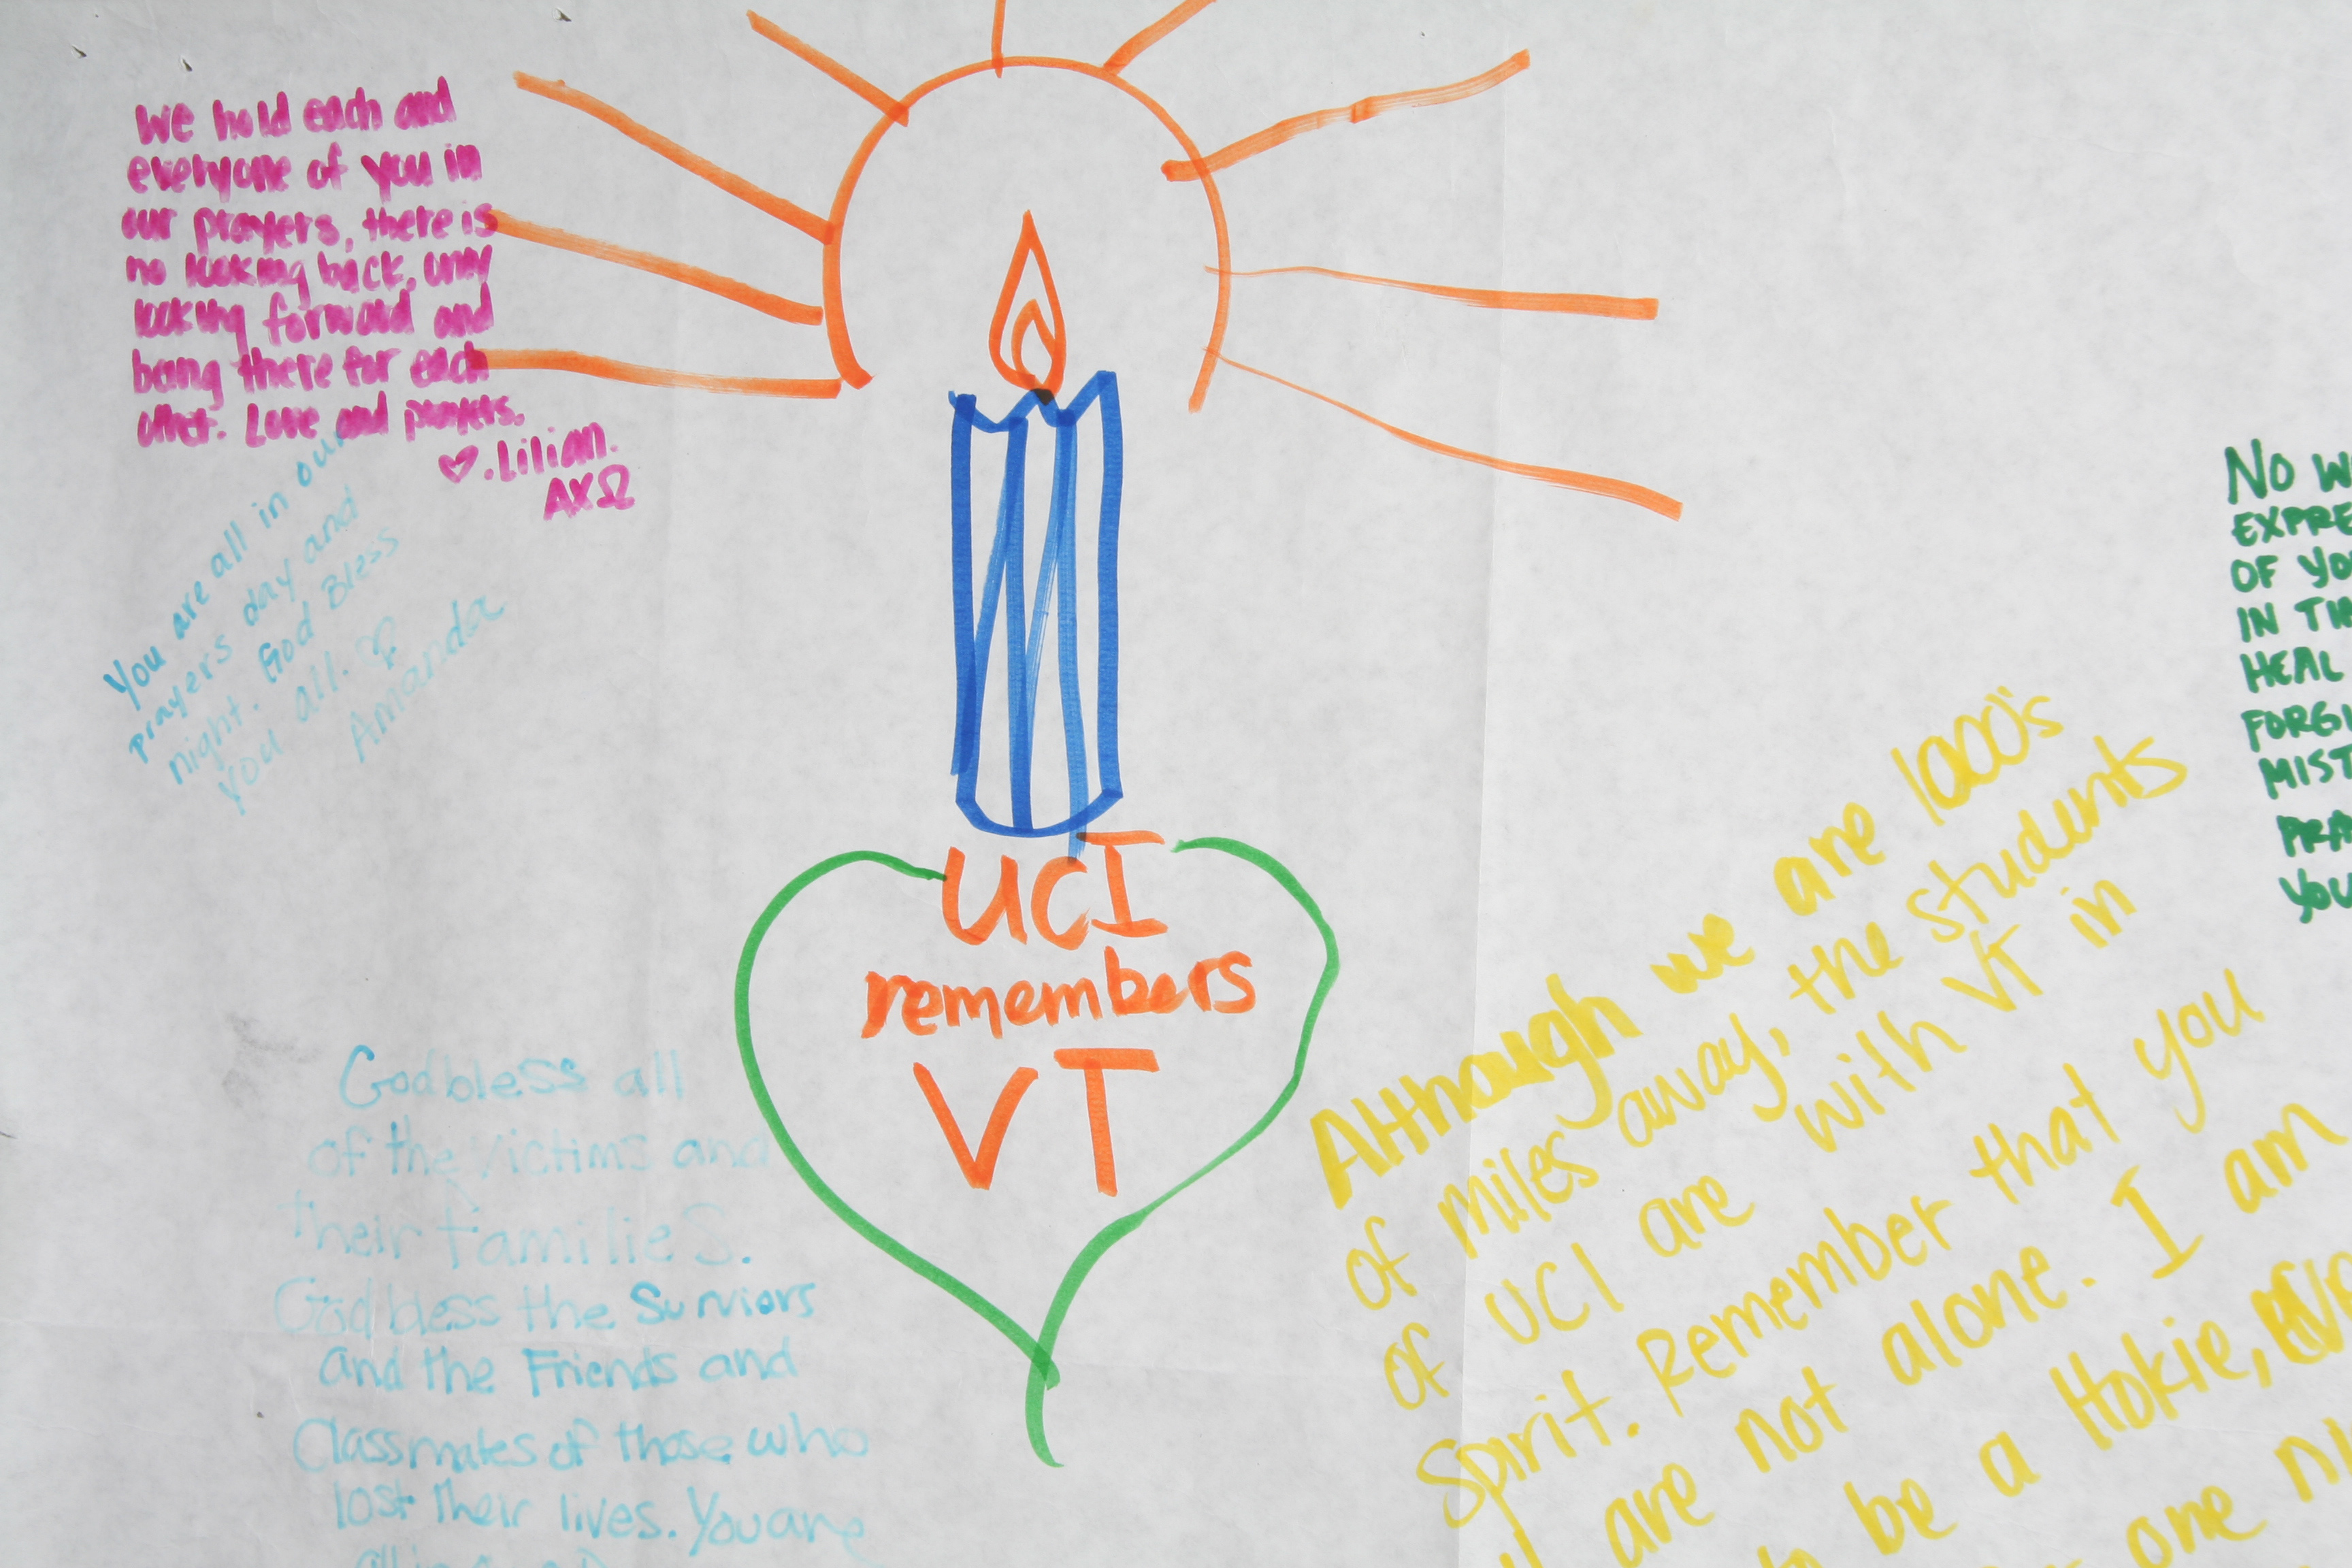 We hold each and
everyone of you in
our prayers, there is
no looking back, only
looking forward and
being there for each
other. Love and prayers.
♡. Lilian.
ΑΧΩ
You are all in our
prayers day and
night. God Bless
you all. ♡
Amanda
God bless all
of the victims and
their families.
God bless the Surviors
and the Friends and
Classmates of those who
lost their lives. You are
all in
UCI
remembers
VT
Although we are 1000's
of miles away, the students
of UCI are with VT in
Spirit. Remember that you
are not alone. I am
to be a Hokie,
one
NO
EXPRE
OF YO
IN TH
HEAL
FORGI
MIST
PRA
YOU